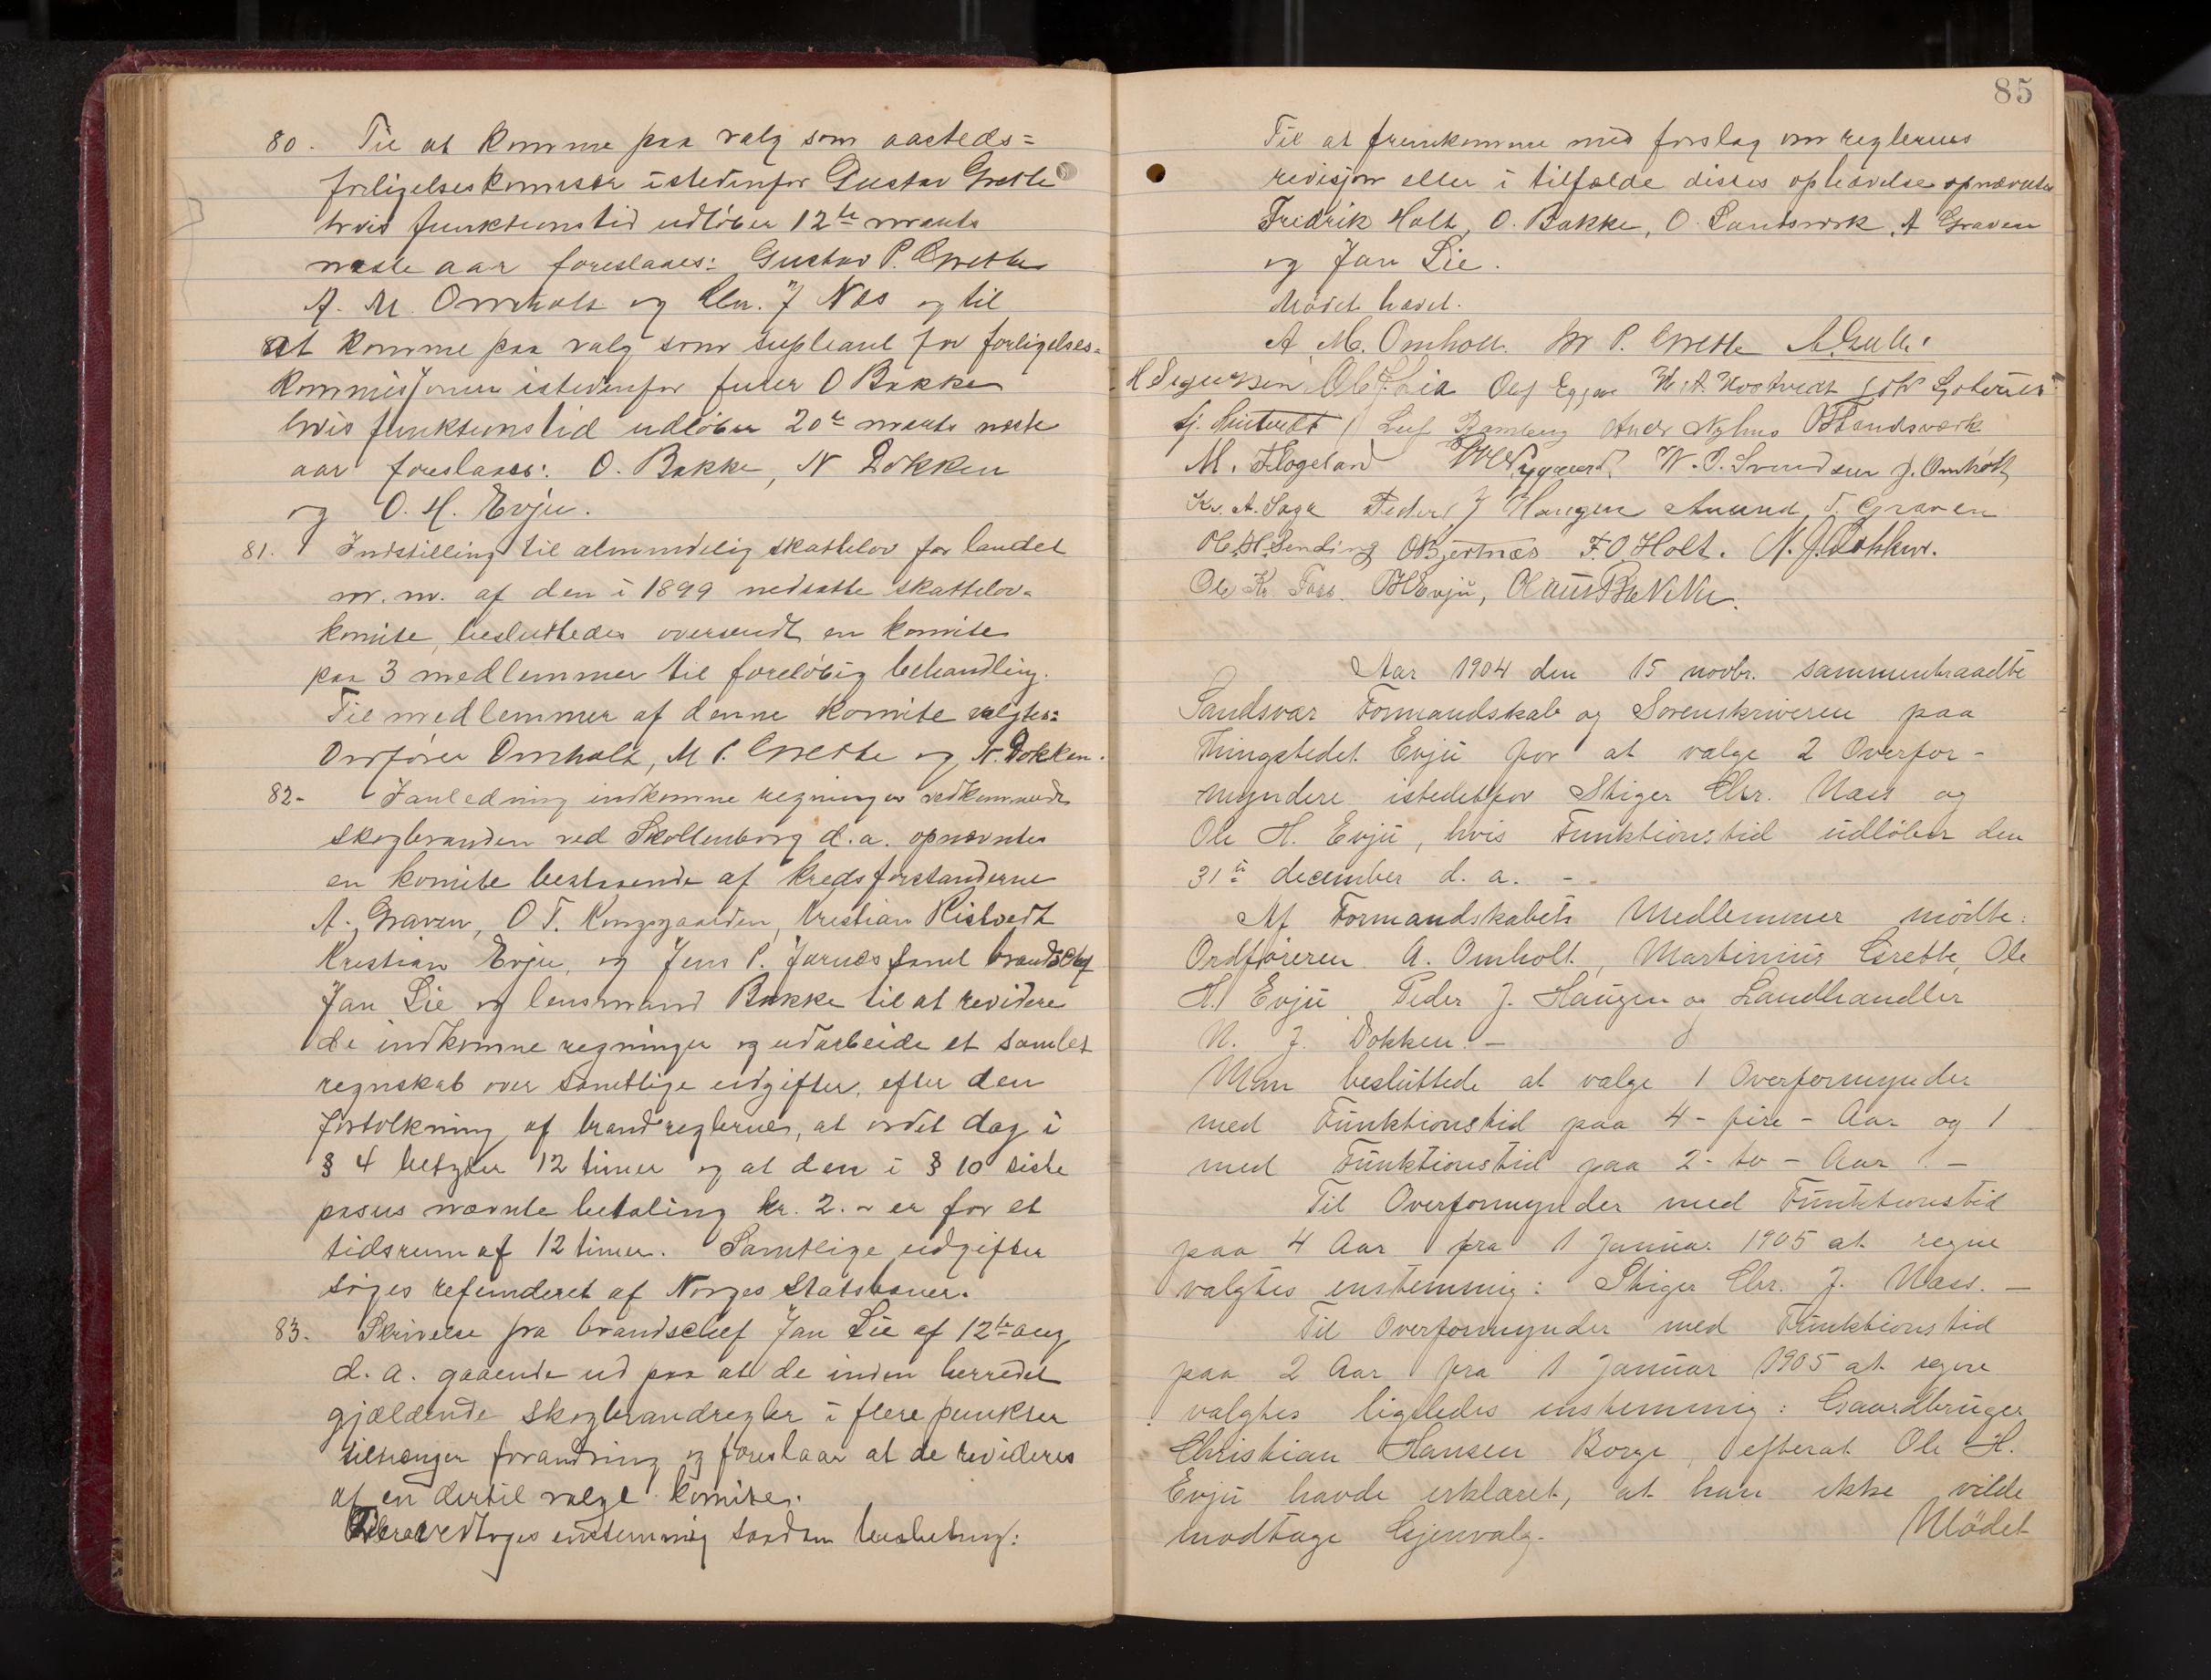 80. Til at komme paa valg som aasteds=
forligelseskommisær istedenfor Gustav Grette
hvis funktionstid udløber 12te marts
næste aar foreslaaes: Gustav P. Grette
A. M. Omholt og Chr. J Næs og til
at komme paa valg som supleant for forligelses-
kommissjonen istedenfor furer O Bakke
hvis funktionstid udløber 20de marts næste
aar foreslaaes: O. Bakke, N Dokken
og O. H. Evju.
81. Indstilling til almindelig skattelov for landet
m.m. af den i 1899 nedsatte skattelov-
komite, besluttedes oversendt en komite
paa 3 medlemmer til foreløbig behandling.
Til medlemmer af denne komite valgtes:
Ordfører Omholt, M P. Grette og N. Dokken.
82- I anledning indkomne regninger vedkommende
skogbranden ved Skollenborg d.a. opnævntes
en komite bestaaende af kredsforstanderne
A. Graven, O T. Kongsgaarden, Kristian Histvedt
Kristian Evju, og Jens P. Jarnes samt brandchef
Jan Lie og lensmand Bakke til at revidere
de indkomne regninger og udarbeide et samlet
regnskab over samtlige udgifter, efter den
fortolkning af brandreglernes, at ordet dag i
§ 4 betyder 12 timer og at den i § 10 siste
pasus nævnte betaling kr. 2.- er for et
tidsrum af 12 timer. Samtlige udgifter
søges refunderet af Norges Statsbaner.
83. Skrivelse fra brandschef Jan Lie af 12te aug
d. a. gaaende ud paa at de inden herredet
gjældende skogbrandregler i flere punkter
tiltrænger forandring og foreslaar at de revideres
af en dertil valgt komite.
vedtoges enstemmig saadan beslutning:
85
Til at fremkomme med forslag om reglernes
revisjon eller i tilfælde disses ophævelse opnævntes
Fredrik Holt, O. Bakke, O. Landsværk, A Graven
og Jan Lie.
Mødet hævet.
A. M. Omholt. M P. Grette A. Gulli
H Sigurdsen Ole J. Lia Olaf Eggar H. A. Hostvedt
Leif Bamberg Andr Nyhus O Landsværk
M. Flogeland Nygaard N. P. Svendsen J. Omholt
Kr. A. Saga Peder J Haugen Amund T. Graven
Ole H. Sending O Bjertnæs F. O Holt. N. J. Dokken.
Ole Kr. Foss. O H Evju, Olaus Bakke.
Aar 1904 den 15 novbr. sammentraadte
Sandsvær Formandskab og Sorenskriveren paa
Thingstedet Evju for at vælge 2 Overfor-
myndere istedetfor Stiger Chr. Næss og
Ole H. Evju, hvis Funktionstid udløber den
31te december d. a. -
Af Formandskabets Medlemmer mødte:
Ordføreren A. Omholt, Martinius Grette, Ole
H. Evju Peder J. Haugen og Landhandler
N. J. Dokken. -
Man besluttede at vælge 1 Overformynder
med Funktionstid paa 4 - fire - Aar og 1
med Funktionstid paa 2 - to - Aar. -
Til Overformynder med Funktionstid
paa 4 Aar fra 1 Januar 1905 at regne
valgtes enstemmig: Stiger Chr. J. Næss. -
Til Overformynder med Funktionstid
paa 2 Aar fra 1 Januar 1905 at regne
valgtes ligeledes enstemmig: Gaardbruger
Christian Hansen Borge, efterat Ole H.
Evju havde erklæret, at han ikke vilde
modtage Gjenvalg. Mødet